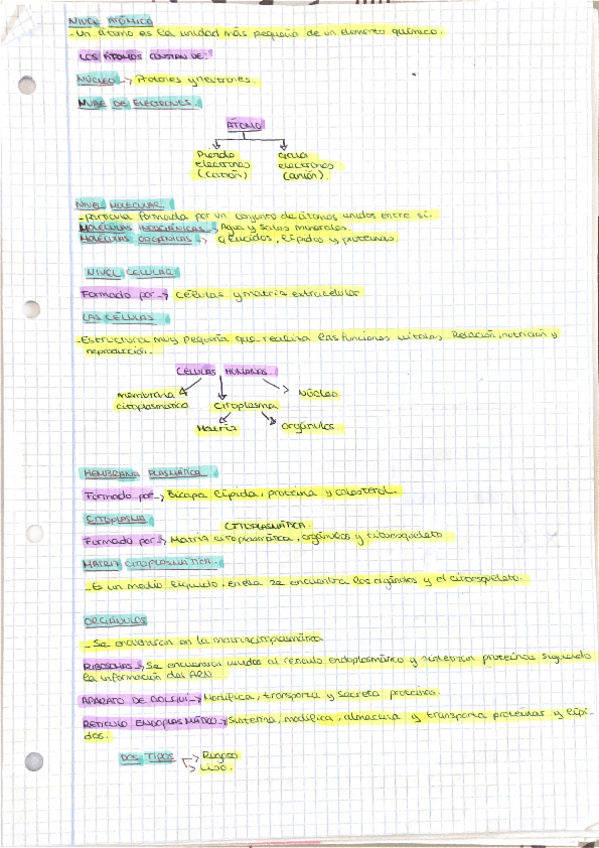 NIVEL ATÓMICO
-Un átomo es la unidad más pequeña de un elemento químico.
LOS ÁTOMOS CONSTAN DE:
NÚCLEO → Protones y neutrones.
NUBE DE ELECTRONES.
ÁTOMO
Pierde electrones (catión)
Gana electrones (anión).
NIVEL MOLECULAR
-partícula formada por un conjunto de átomos unidos entre sí.
MOLÉCULAS INORGÁNICAS → Agua y Sales minerales.
MOLÉCULAS ORGÁNICAS → Glúcidos, lípidos y proteínas.
NIVEL CELULAR
Formado por → Células y matriz extracelular
LAS CÉLULAS
-Estructura muy pequeña que realiza las funciones vitales, Relación, nutrición y
reproducción.
CÉLULAS HUMANAS.
membrana citoplasmatica
Citoplasma
Núcleo
Matriz
orgánulos
MEMBRANA PLASMÁTICA
Formado por → Bicapa lípida, proteína y colesterol.
CITOPLASMA
CITOPLASMÁTICA.
Formado por → Matriz citoplasmática, orgánulos y citoesqueleto
MATRIZ CITOPLASMÁTICA.
-Es un medio líquido, en ella se encuentra los orgánulos y el citoesqueleto.
ORGÁNULOS
-Se encuentran en la matriz citoplasmática
RIBOSOMAS → Se encuentran unidos al retículo endoplasmático y sintetizan proteínas siguiendo
la información del ARN
APARATO DE GOLGI → Modifica, transporta y secreta proteínas.
RETÍCULO ENDOPLASMÁTICO → Sintetiza, modifica, almacena y transporta proteínas y lípi-
dos.
DOS TIPOS → Rugoso
Liso.